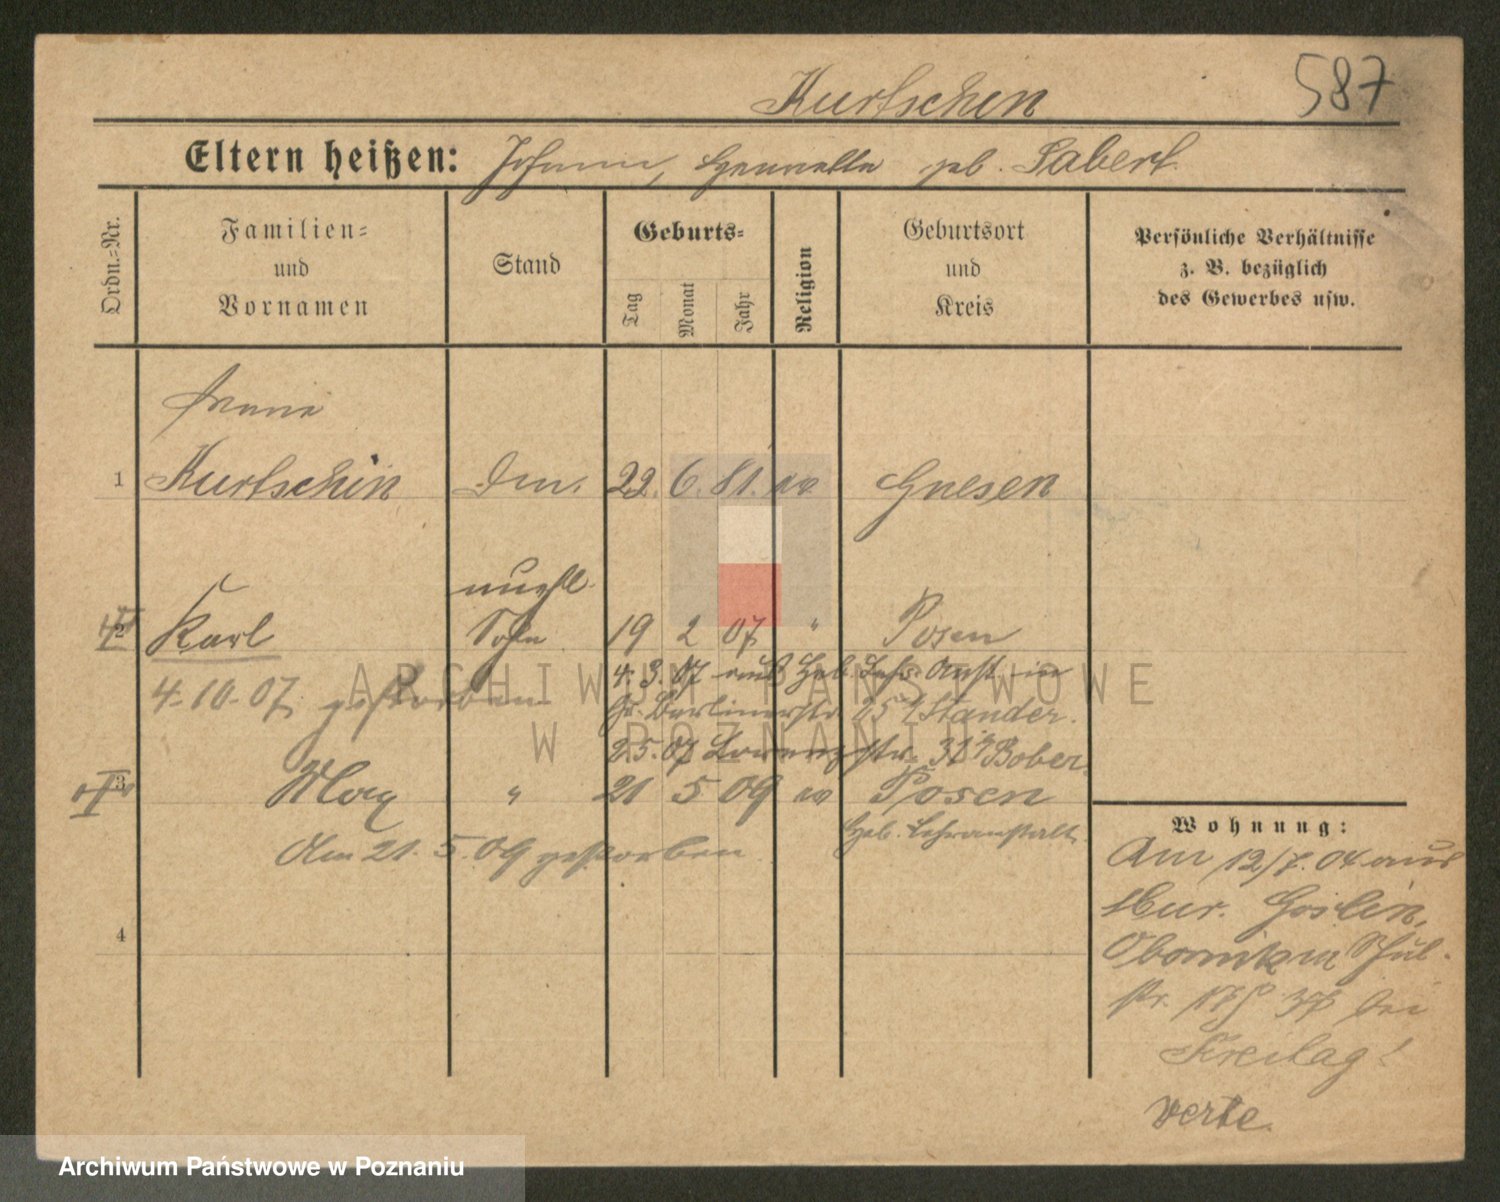 587
Kurtschen
Eltern heißen: Johann, Henriette geb. Sabert.
Ordn.-Nr.
Familien-
und
Vornamen
Stand
Geburts-
Tag
Monat
Jahr
Religion
Geburtsort
und
Kreis
Persönliche Verhältnisse
z. B. bezüglich
des Gewerbes usw.
1 Kurtschin 22. 6. 81. ev Gnesen
unehl.
2 Karl Sohn 19 2 07 " Posen
4.10.07 gestorben
4.3.07 aus Heb. Lehr Anst in
Gr. Berlinerstr Ständer.
25.07 31 Bober.
3 Max " 21 5 09 ev Posen
Heb. Lehranstalt
Am 21. 5. 09 gestorben
4
Wohnung:
Am 12/7. 04 aus
Mur. Goslin,
Obornik in Schul-
str. bei
Freitag!
verte.
ARCHIWUM PAŃSTWOWE
W POZNANIU
Archiwum Państwowe w Poznaniu